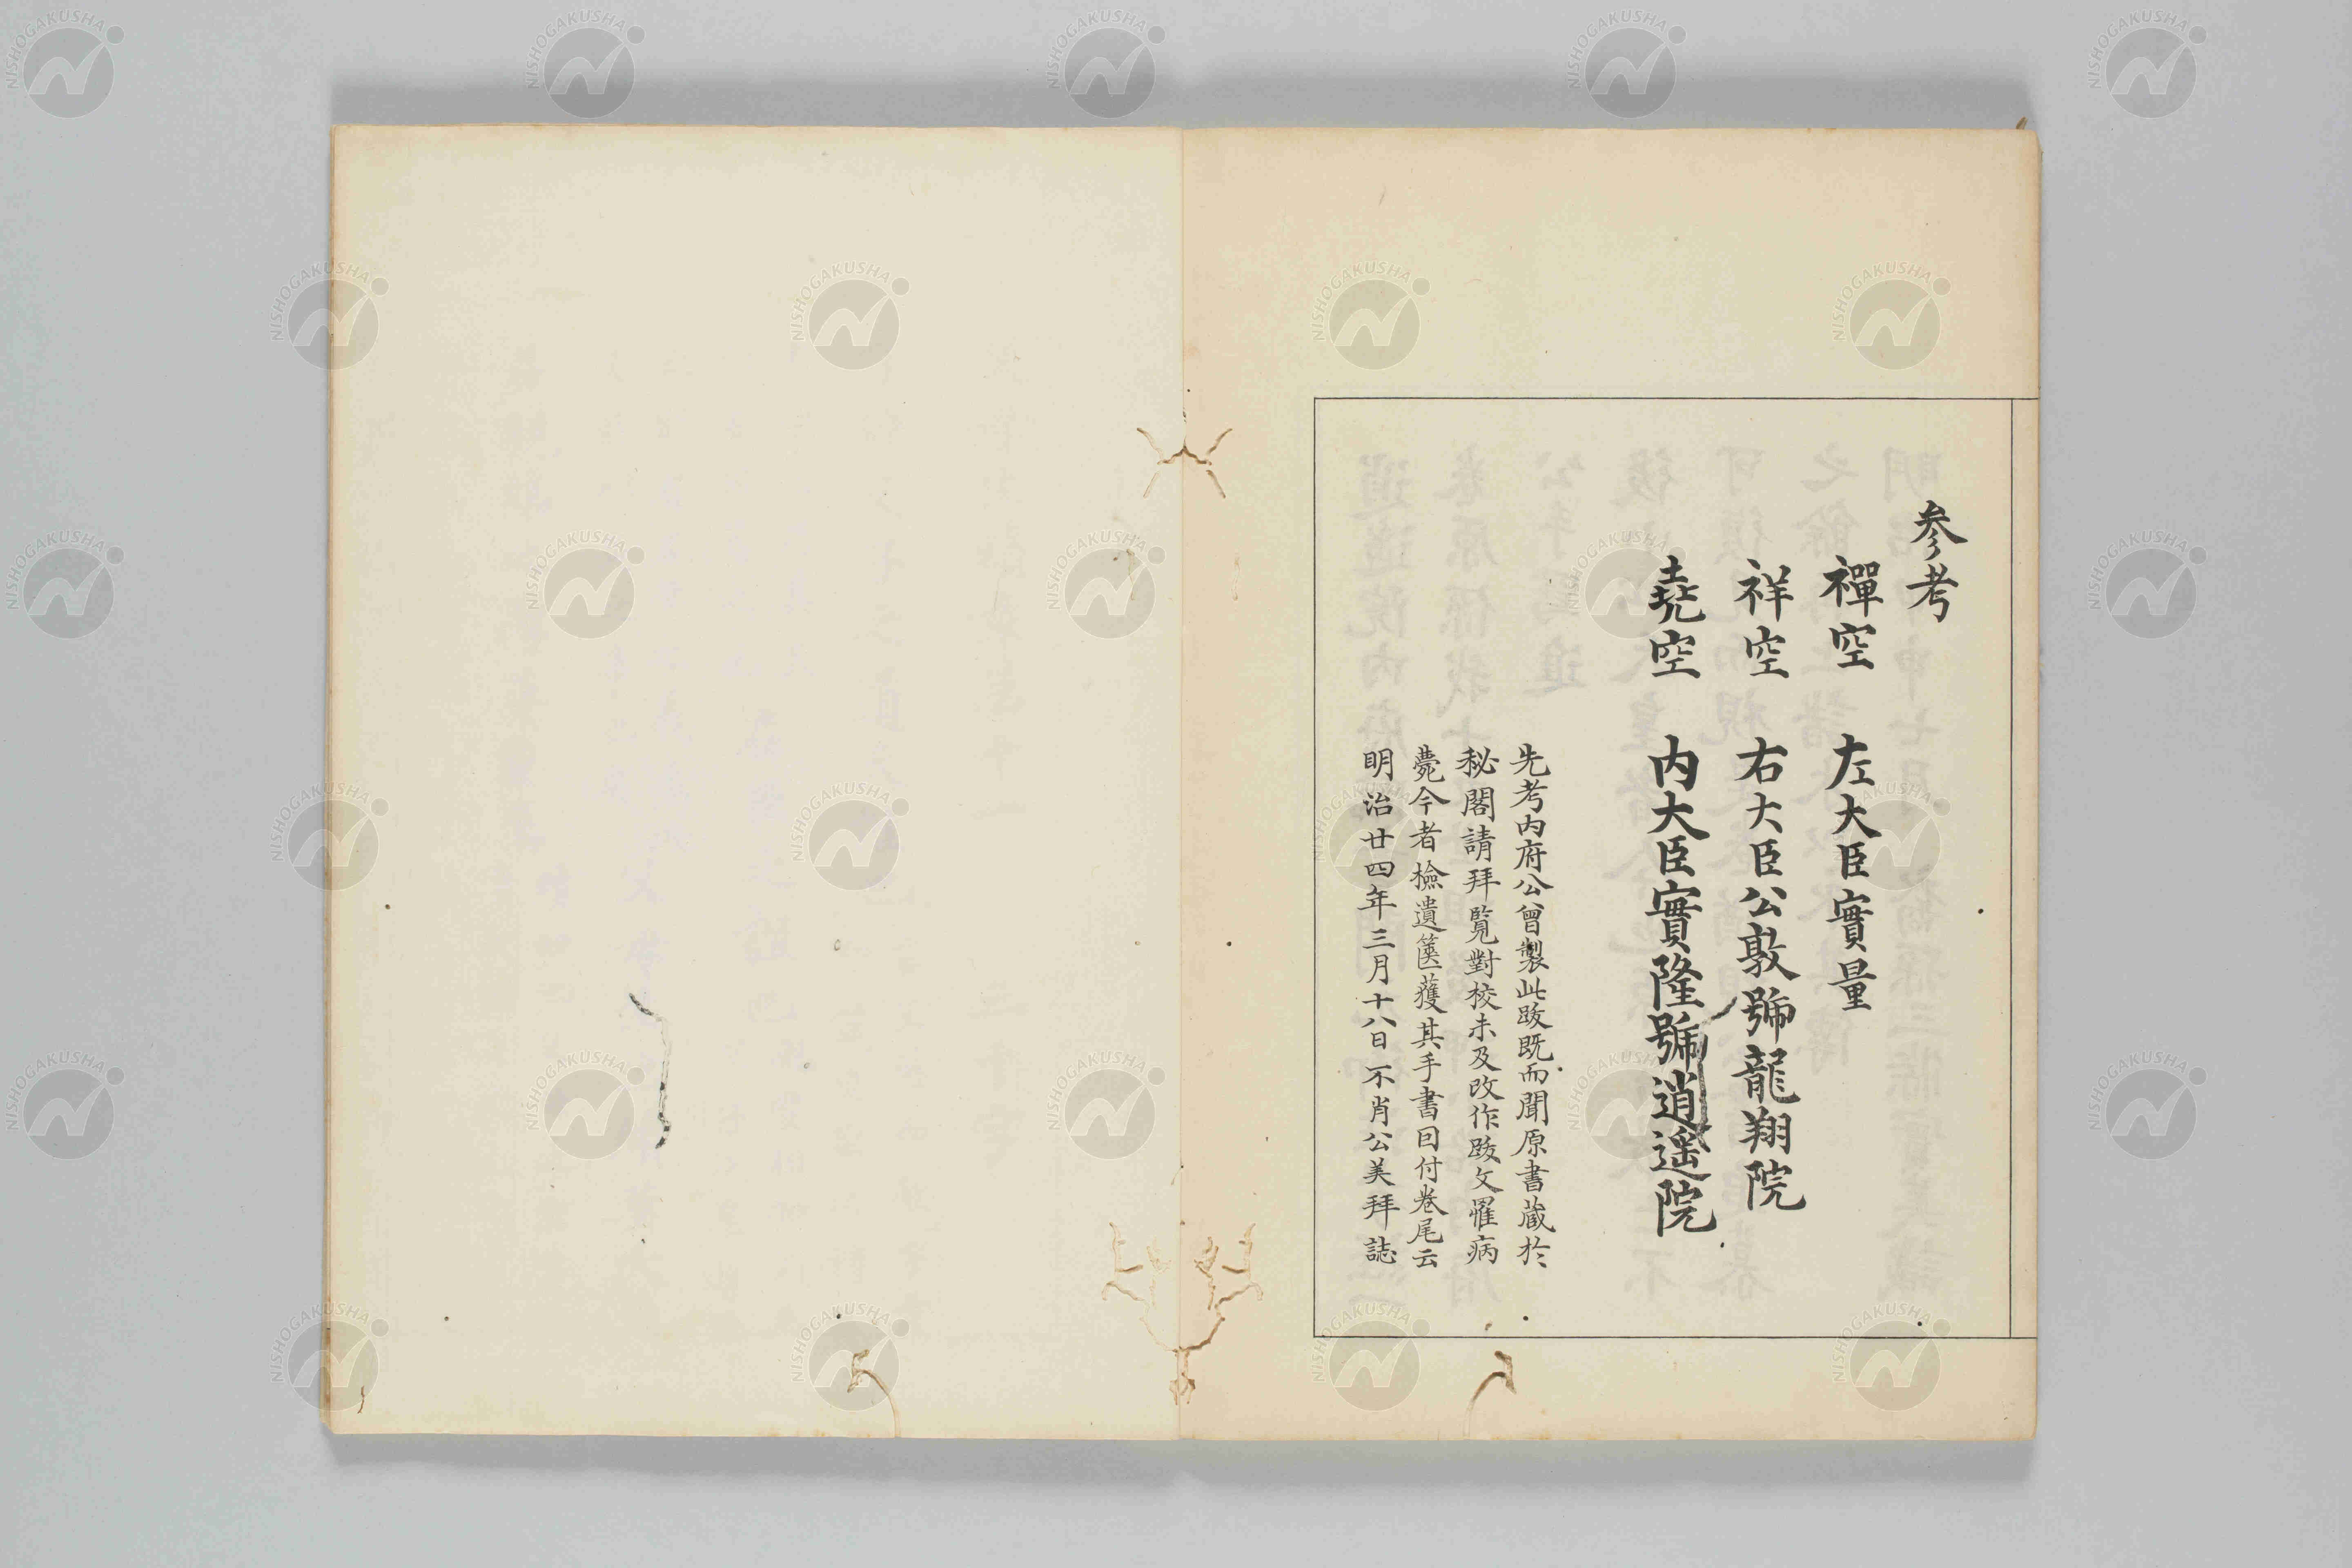 参考
禪空 左大臣實量
祥空 右大臣公敦號龍翔院
堯空 内大臣實隆號逍遥院
先考内府公曾製此跋既而聞原書蔵於
秘閣請拜覧對校未及改作跋文罹病
薨今者檢遺篋獲其手書因付卷尾云
明治廿四年三月十八日不肖公美拜誌
NISHOGAKUSHA